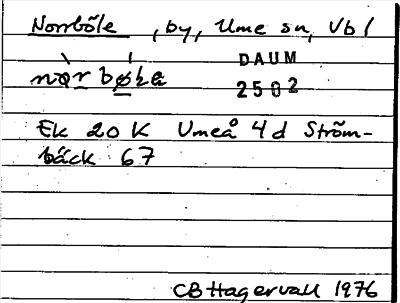 Norrböle, by, Ume sn, Vbl
DAUM
2502
Ek 20 K Umeå 4d Ström-
bäck 67
CBHagervall 1976